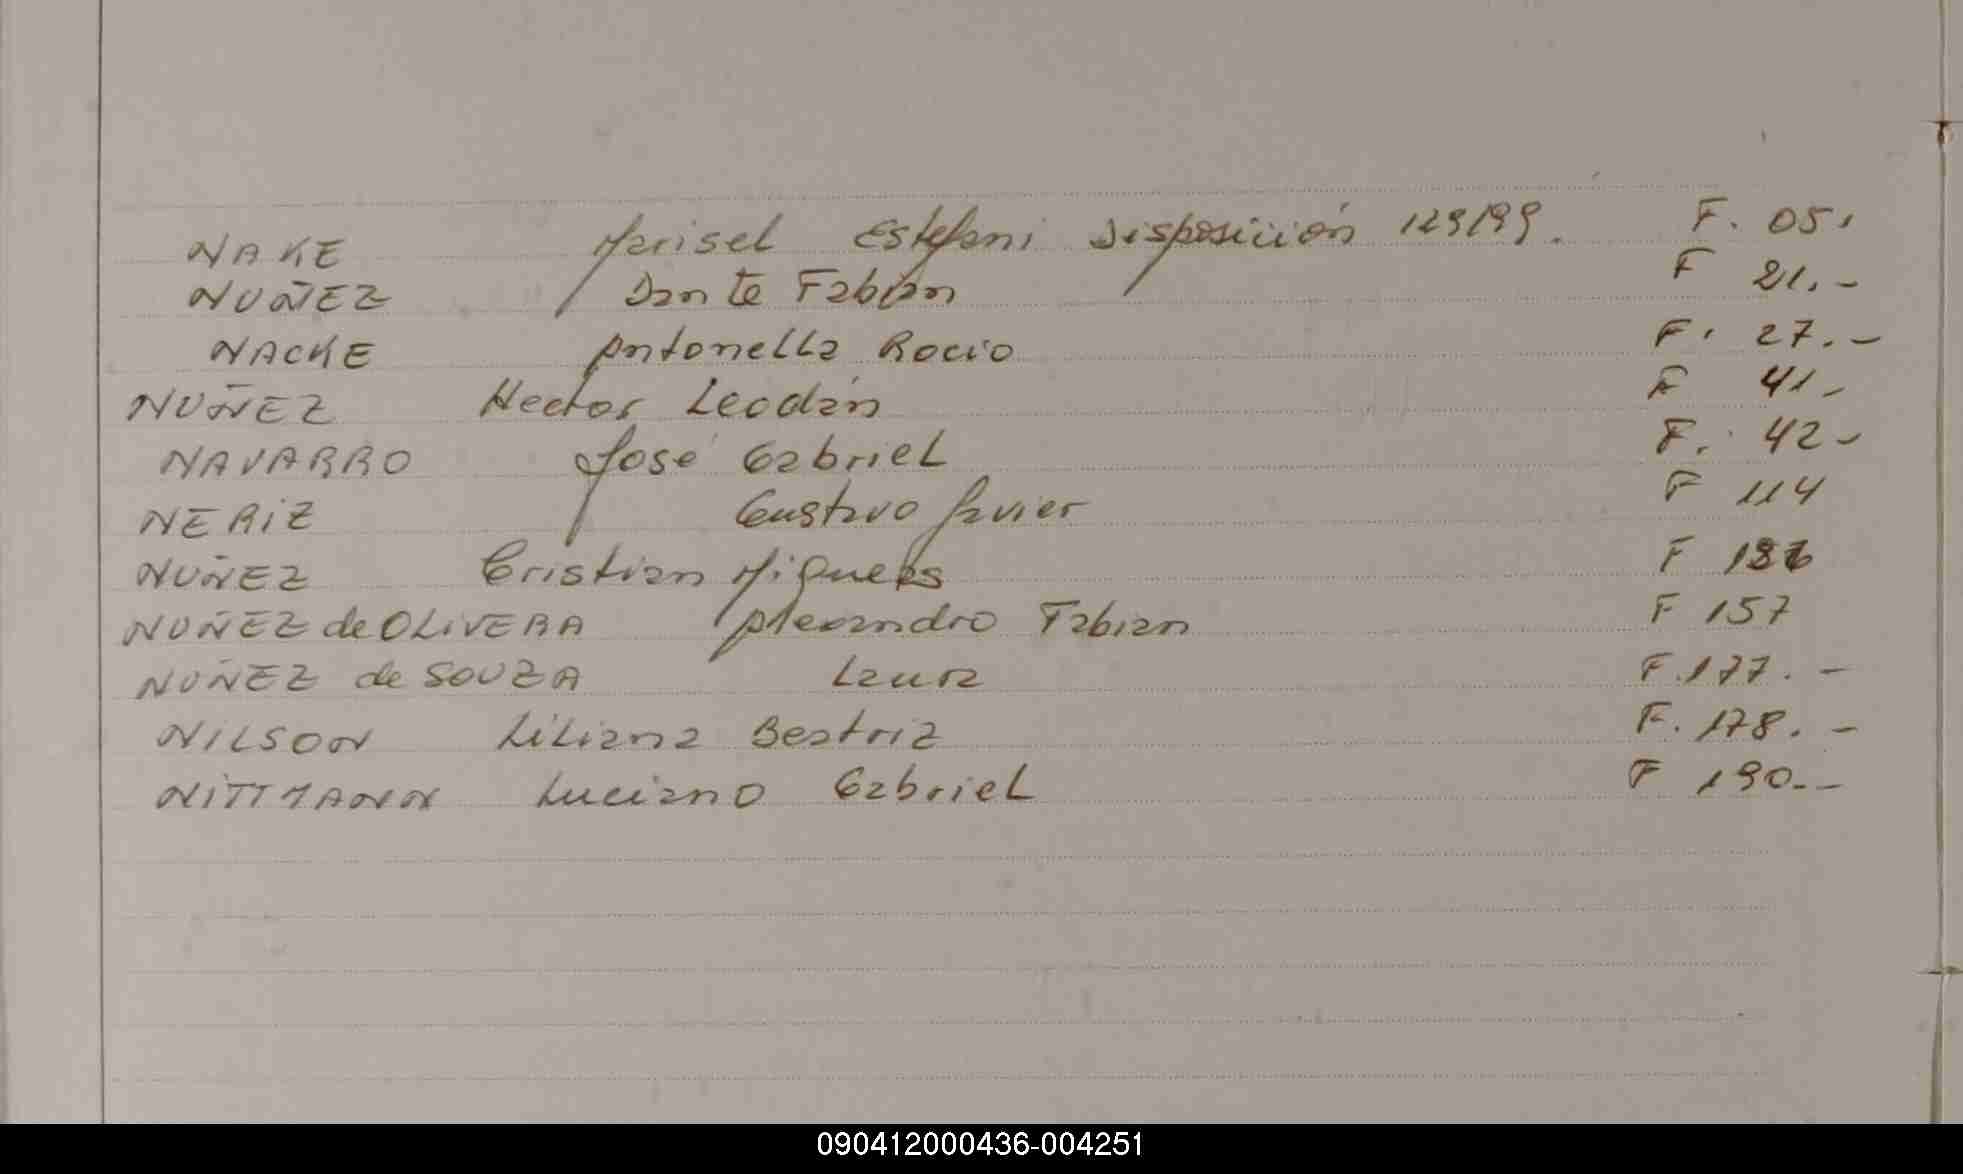 NAKE Marisel Estefani Disposición 129/99. F. 05.
NUÑEZ Dante Fabián F 21.-
NACKE Antonella Rocio F. 27.-
NUÑEZ Hector Leodán F 41-
NAVARRO José Gabriel F. 42-
NERIZ Gustavo Javier F 114
NUÑEZ Cristian F
NUÑEZ de OLIVERA Alexandro Fabian F 157
NUÑEZ de SOUZA Laura F. 177.-
NILSON Liliana Beatriz F. 178.-
NITTMANN Luciano Gabriel F 190.-
090412000436-004251